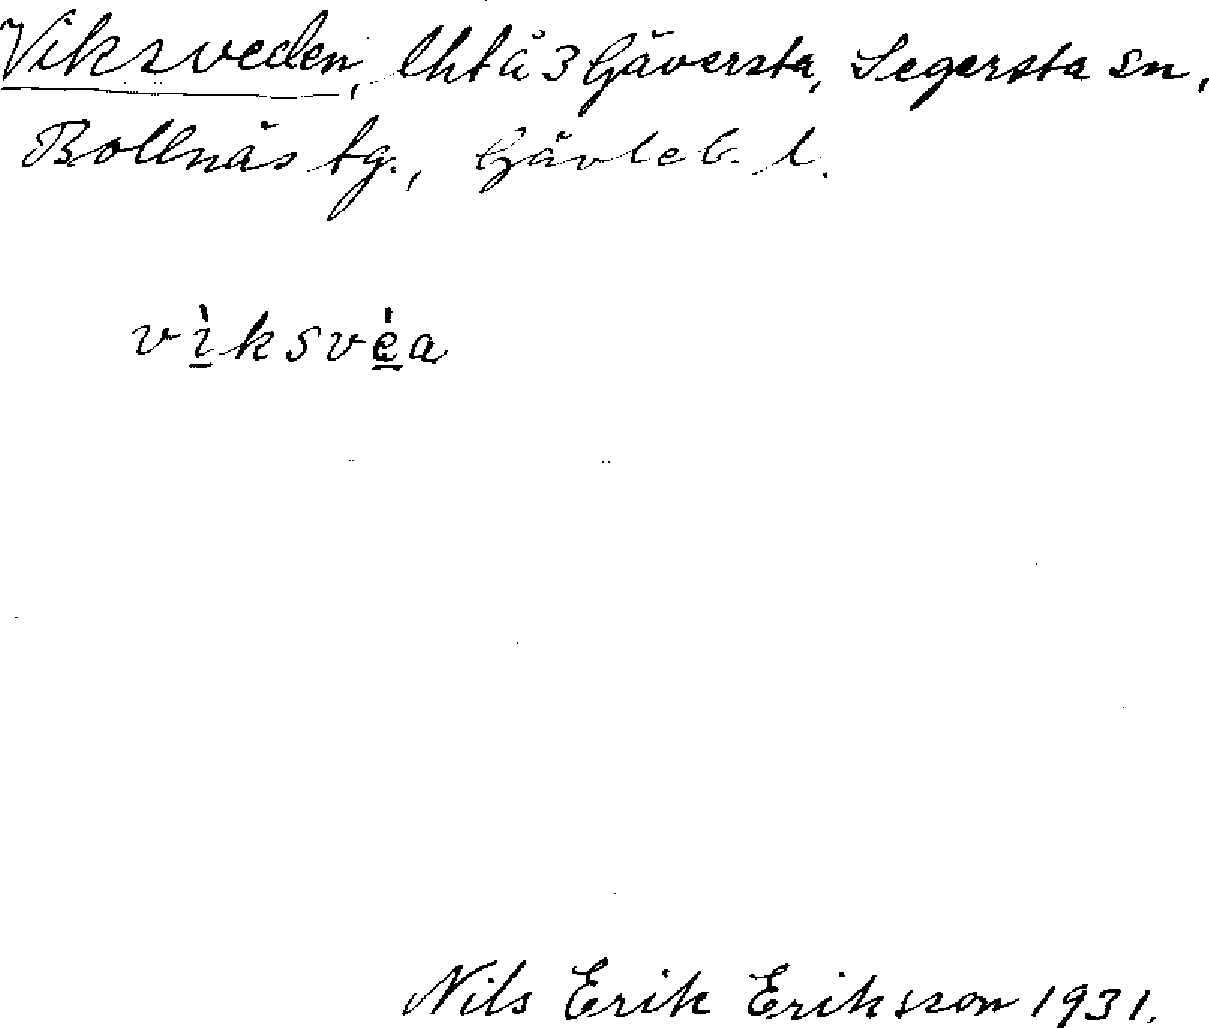 Viksveden, lht å 3 Gäversta, Segersta sn,
Bollnäs tg., Gävleb. l.
vìksvéa
Nils Erik Eriksson 1931.